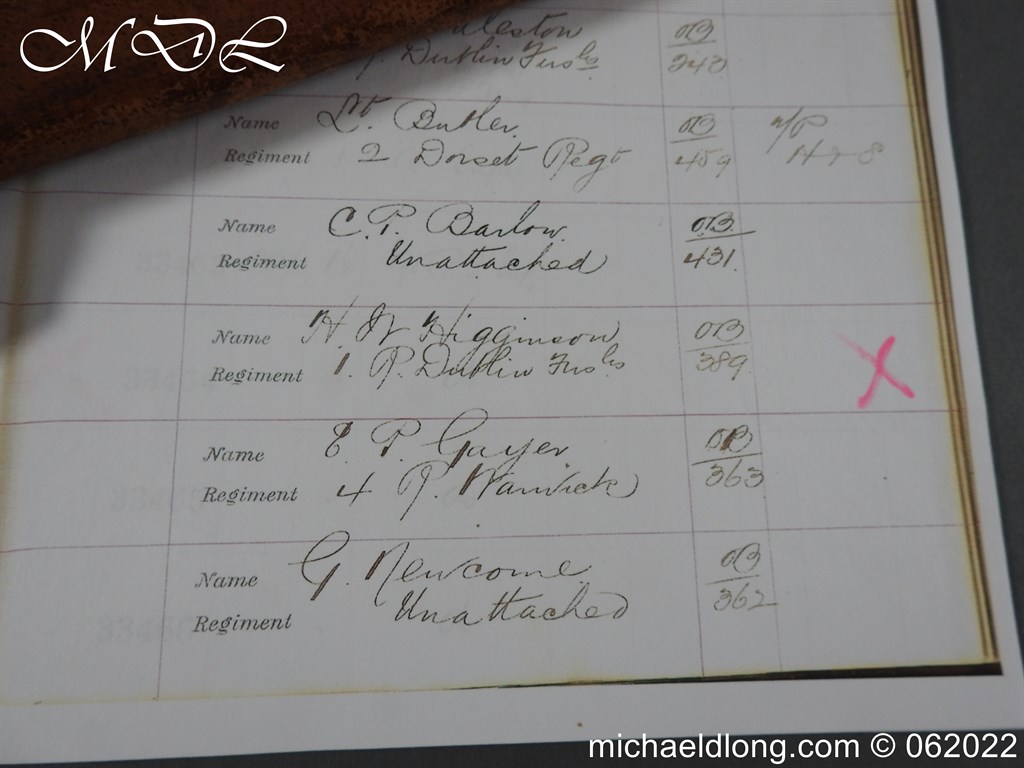 MDL
Dublin Fusls
OB
243
Name Lt. Butler.
OB
Regiment 2 Dorset Regt
459
Name C. P. Barlow.
OB
Regiment Unattached
431.
Name H. W Higginson
OB
Regiment 1. R. Dublin Fusls
389
X
Name E. P. Gayer
OB
Regiment 4 R Warwick
363
Name G. Newcome
OB
Regiment Unattached
362
michaeldlong.com © 062022